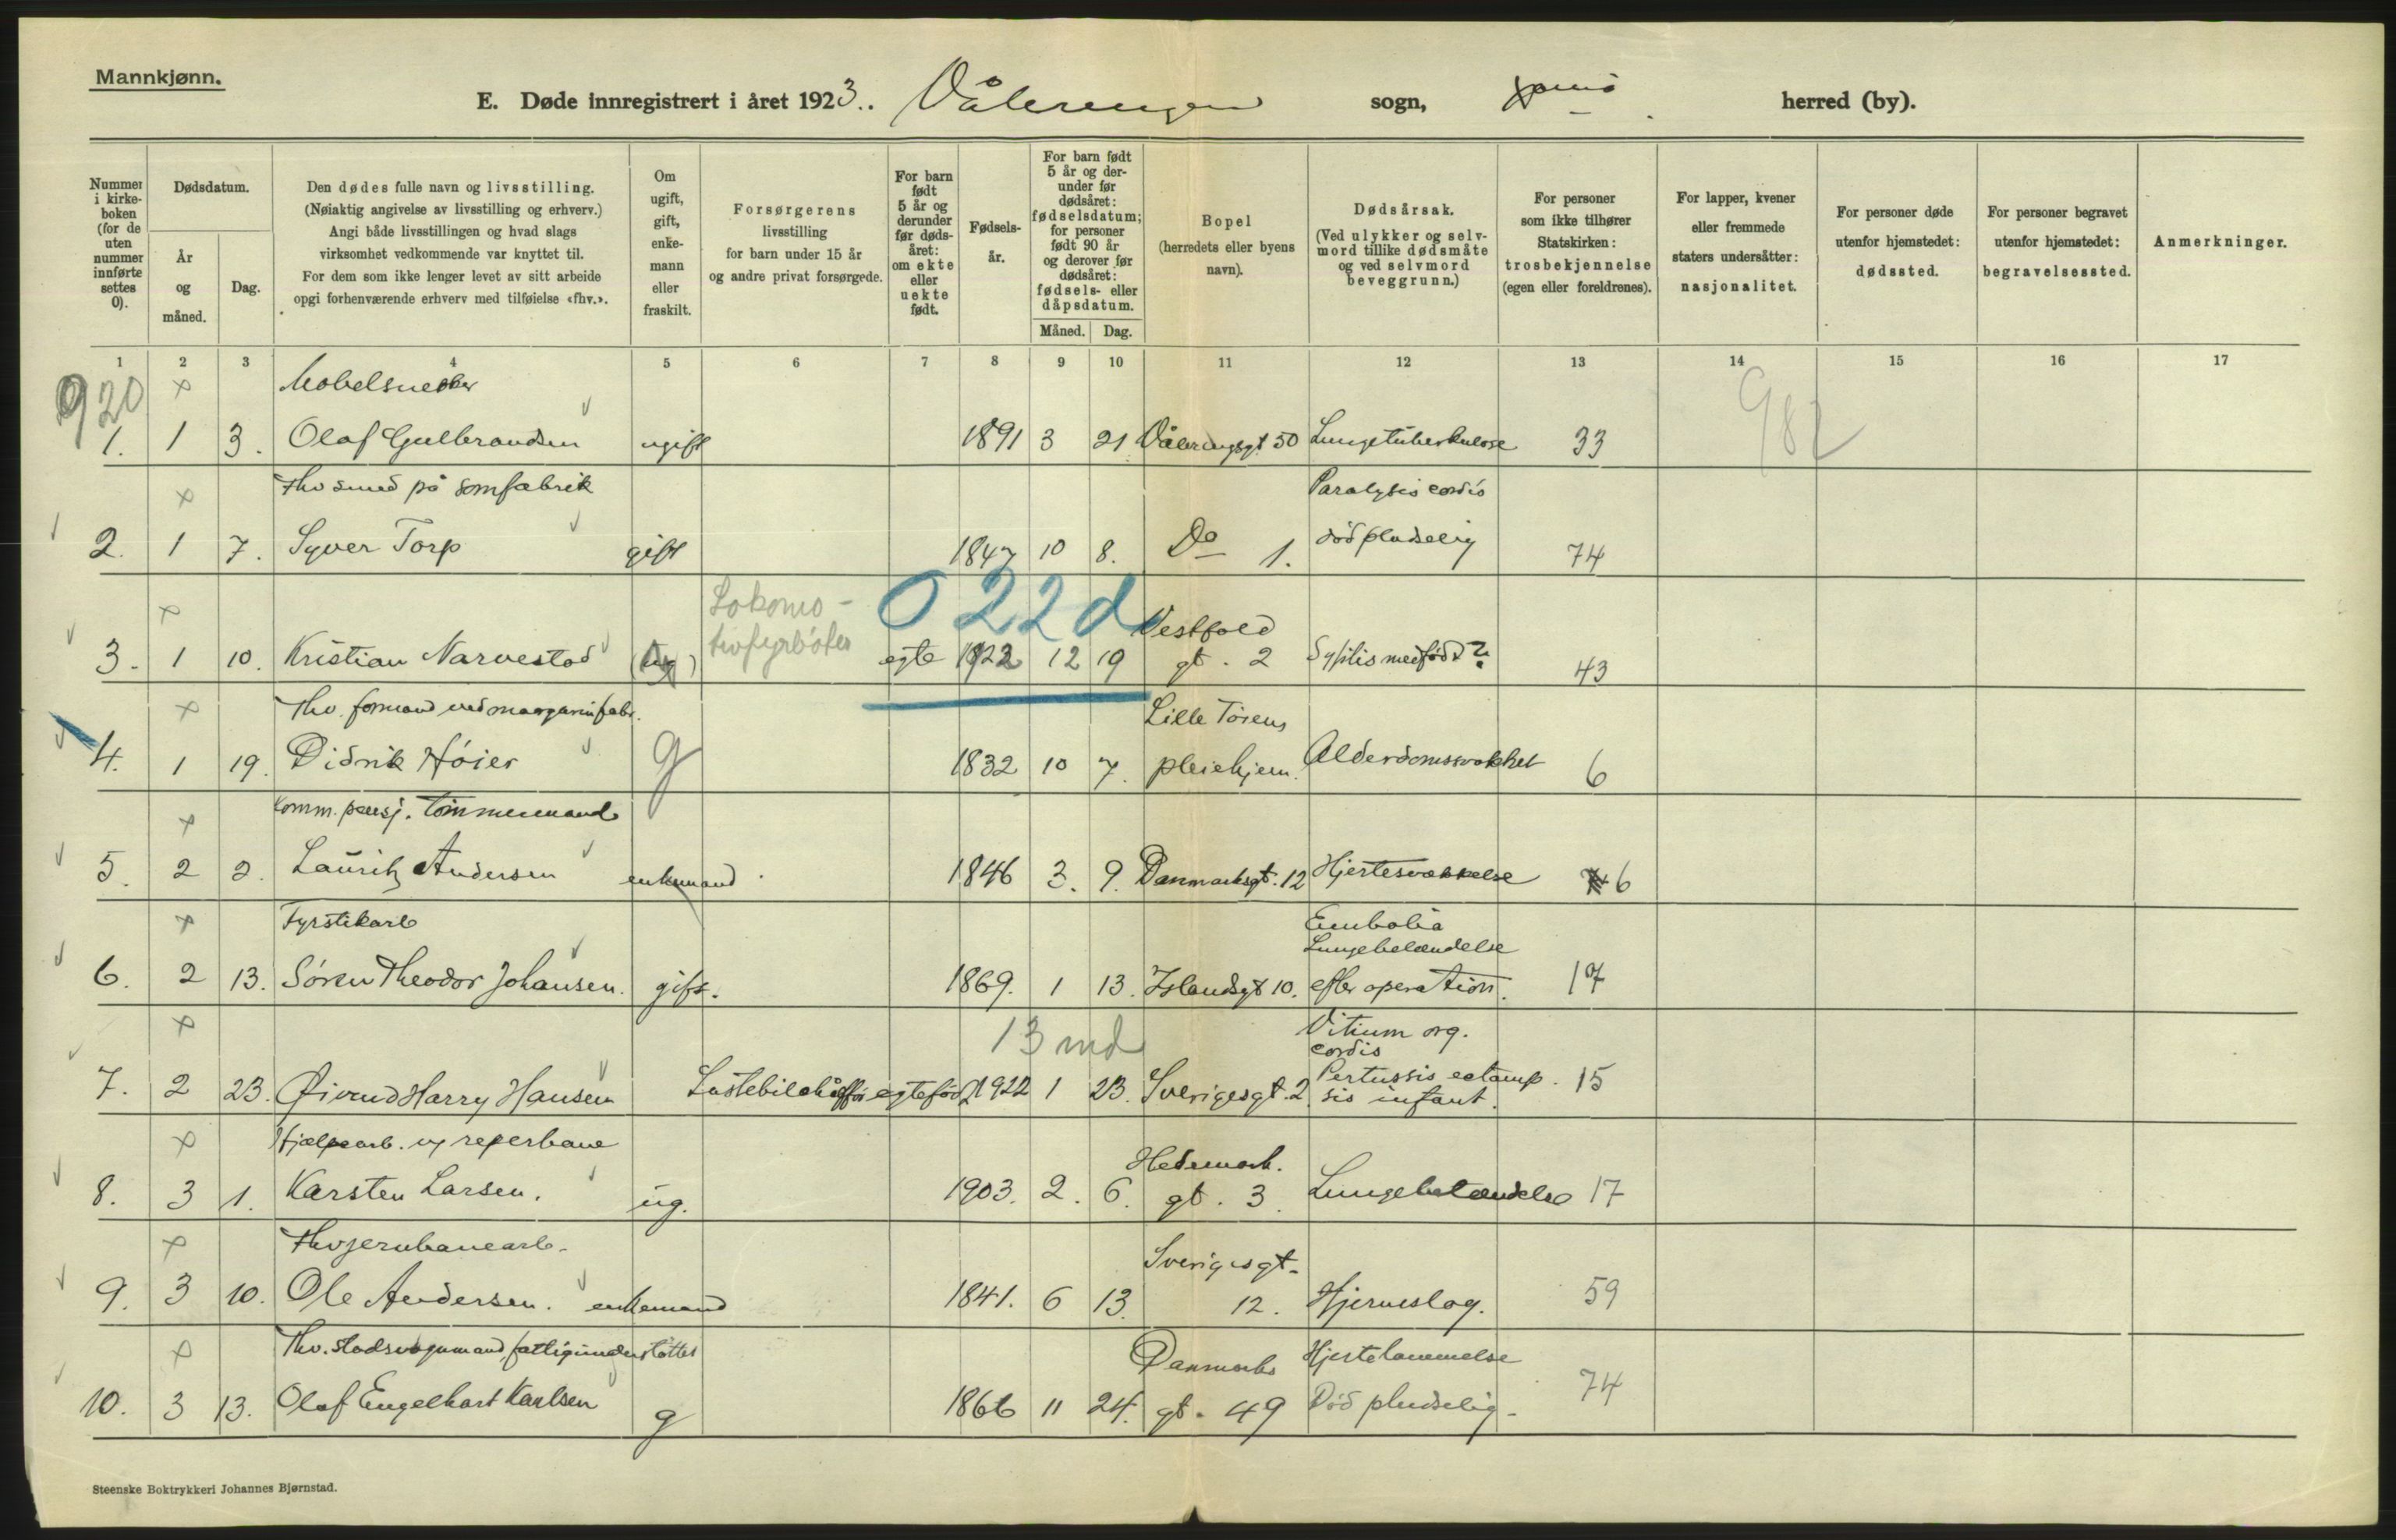 Mannkjønn.
E. Døde innregistrert i året 1923. Vålerengen sogn, herred (by).
Nummer i kirkeboken (for de uten nummer innførte settes 0).
Dødsdatum.
År og måned.
Dag.
Den dødes fulle navn og livsstilling.
(Nøiaktig angivelse av livsstilling og erhverv.)
Angi både livsstillingen og hvad slags
virksomhet vedkommende var knyttet til.
For dem som ikke lenger levet av sitt arbeide
opgi forhenværende erhverv med tilføielse «fhv.».
Om ugift, gift, enkemann eller fraskilt.
Forsørgerens
livsstilling
for barn under 15 år
og andre privat forsørgede.
For barn født 5 år og derunder før dødsåret: om ekte eller uekte født.
Fødselsår.
For barn født 5 år og derunder før dødsåret: fødselsdatum; for personer født 90 år og derover før dødsåret: fødsels- eller dåpsdatum.
Måned. Dag.
Bopel
(herredets eller byens
navn).
Dødsårsak.
(Ved ulykker og selvmord tillike dødsmåte og ved selvmord beveggrunn.)
For personer
som ikke tilhører
Statskirken:
trosbekjennelse
(egen eller foreldrenes).
For lapper, kvener
eller fremmede
staters undersåtter:
nasjonalitet.
For personer døde
utenfor hjemstedet:
dødssted.
For personer begravet
utenfor hjemstedet:
begravelsessted.
Anmerkninger.
1 2 3 4 5 6 7 8 9 10 11 12 13 14 15 16 17
920 × Møbelsnekker 982
1. 1 3. Olaf Gulbrandsen ugift 1891 3 21 Vålerengsgt 50 Lungetuberkulose 33
× fhv smed på sømfabrik Paralysis cordis
2. 1 7. Syver Torp gift 1847 10 8. Do 1. død pludselig 74
× Lokomo- 022d Vestfold
tivfyrbøter
3. 1 10. Kristian Narvestad (ug) egte 1922 12 19 gt. 2 Syfilis medfødt? 43
× fhv. formand ved margarinfabr. Lille Tøiens
4. 1 19. Didrik Høier g 1832 10 7. pleiehjem. Alderdomssvakhet 6
× Komm. pensj. tømmermand
5. 2 2. Lauritz Andersen enkemand 1846 3. 9. Danmarksgt. 12 Hjertesvækkelse 6
× Fyrstikarb Embolia
Lungebetændelse
6. 2 13. Søren Theodor Johansen. gift. 1869. 1 13. Islandsgt 10. efter operation. 17
× 13 md Vitium org.
cordis
7. 2 23. Øivind Harry Hansen Lastebilchaffør egte født 1922 1 23. Sverigesgt. 2. Pertussis eclamp-
sis infant. 15
× Hjælpearb. v reperbane Hedemark.
8. 3 1. Karsten Larsen. ug. 1903. 2. 6. gt. 3. Lungebetændelse 17
× fhv jernbanearb. Sverigesgt.
9. 3 10. Ole Andersen. enkemand 1841. 6 13. 12. Hjerneslag. 59
× fhv. stadsvognmand, fattigunderstøttet Danmarks Hjertelammelse
10. 3 13. Olaf Engelhart Karlsen g 1866 11 24. gt. 49 Død pludselig. 74
Steenske Boktrykkeri Johannes Bjørnstad.